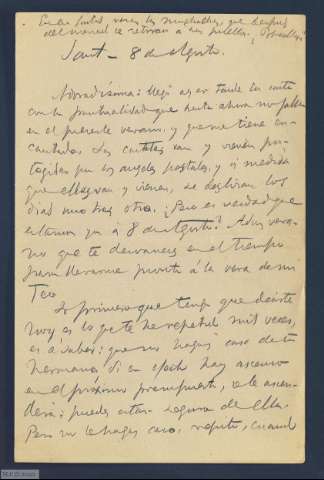 Sant – 8 de Agosto.
Adoradísima: llegó ayer tarde la carta
con la puntualidad que hasta ahora no falla
en el presente verano, y que me tiene en-
cantado. Las cartitas van y vienen pro-
tegidas por los angeles postales, y á medida
que ellas van y vienen, se deslizan los
días uno tras otro. ¿Pero es verdad que
estamos ya á 8 de Agosto? Adios vera-
no que te desvaneces en el tiempo
para llevarme pronto á la vera de mi
Teo
Lo primero que tengo que decirte
hoy es lo que te he repetido mil veces,
es á saber: que no hagas caso de tu
hermana. Si en efecto hay ascenso
en el próximo presupuesto, se le ascen-
derá; puedes estar segura de ello.
Pero no le hagas caso, repito, cuando